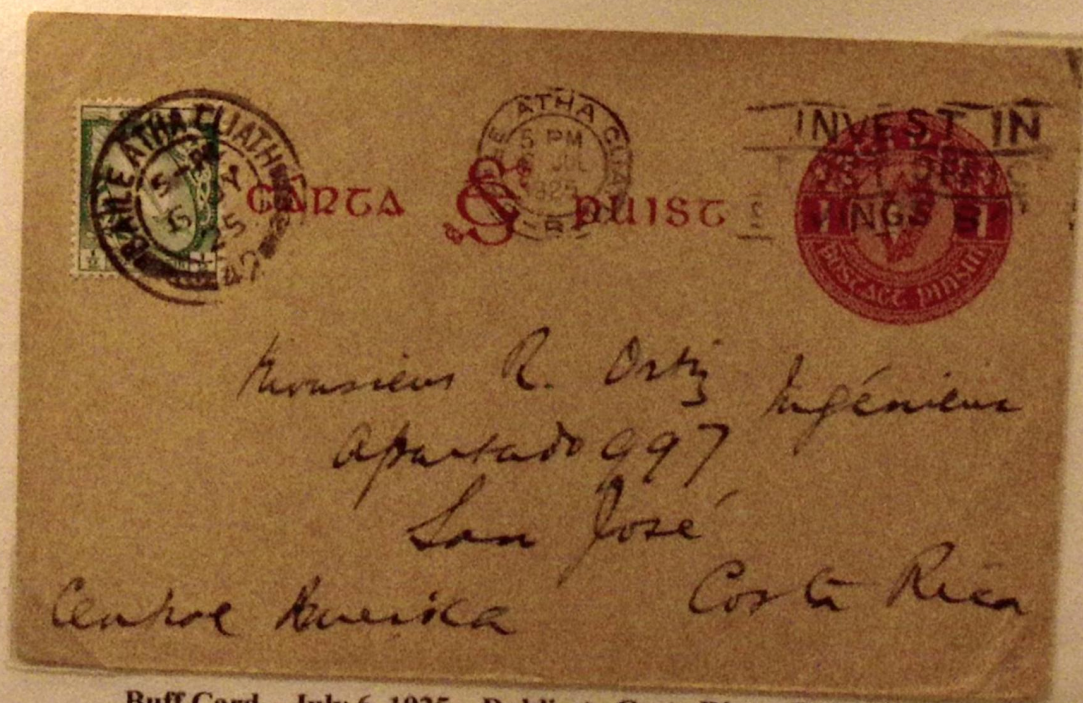 BAILE ÁTHA CLIATH
5
6 JY
25
42
½
CARTA PUIST
ATHA
5 PM
JUL
1925
INVEST IN
1 1
POSTAGE PINSIN
Monsieur R. Ortiz Ingénieur
Apartado 997
San José
Costa Rica
Central Amerika
Buff Card July 6, 1925